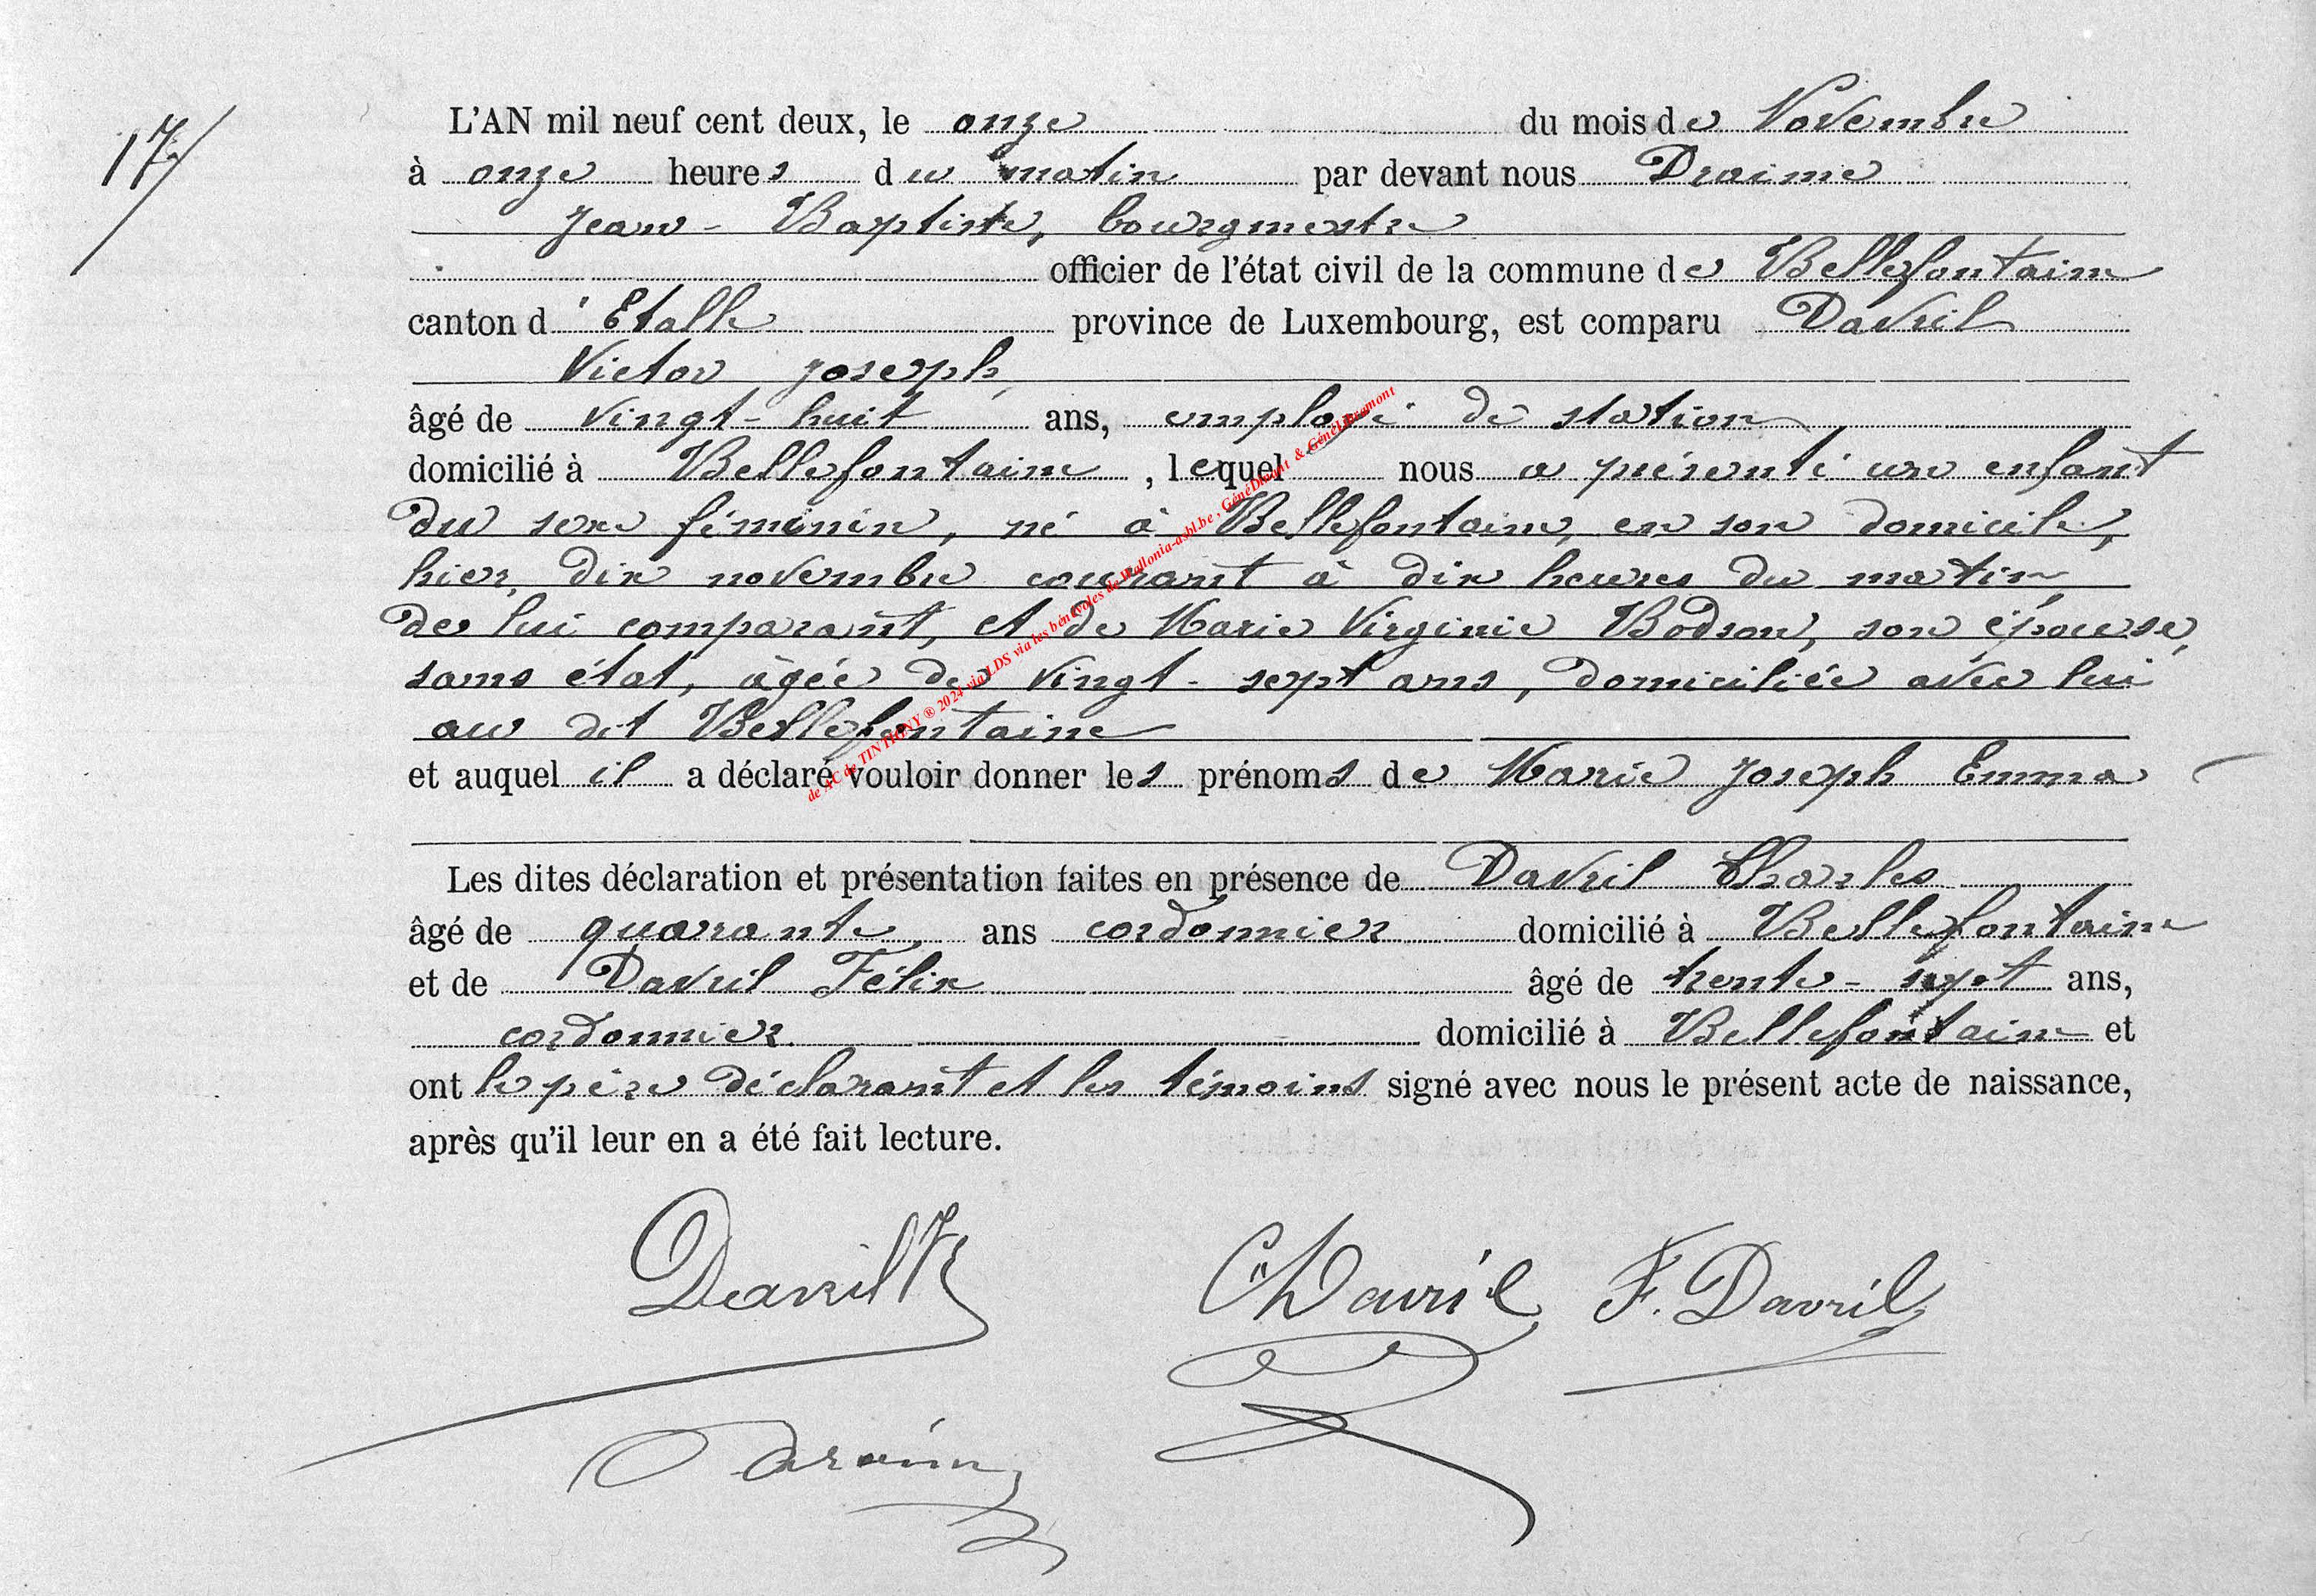 17/
L'AN mil neuf cent deux, le onze du mois de Novembre
à onze heures du matin par devant nous Draime
Jean-Baptiste, bourgmestre
officier de l'état civil de la commune de Bellefontaine
canton d'Etalle province de Luxembourg, est comparu Davril
Victor Joseph,
âgé de vingt-huit ans, employé de station
domicilié à Bellefontaine, lequel nous a présenté un enfant
du sexe féminin, né à Bellefontaine, en son domicile,
hier, dix novembre courant à dix heures du matin,
de lui comparant, et de Marie Virginie Bodson, son épouse,
sans état, âgée de vingt-sept ans, domiciliée avec lui
au dit Bellefontaine
et auquel il a déclaré vouloir donner les prénoms de Marie Joseph Emma
Les dites déclaration et présentation faites en présence de Davril Charles
âgé de quarante ans cordonnier domicilié à Bellefontaine
et de Davril Félix âgé de trente-sept ans,
cordonnier domicilié à Bellefontaine et
ont le père déclarant et les témoins signé avec nous le présent acte de naissance,
après qu'il leur en a été fait lecture.
Davril V
Ch Davril F. Davril
Draime
de AC de TINTIGNY ® 2024 via LDS via les bénévoles de Wallonia-asbl.be, GénéDinant & GénéLibramont